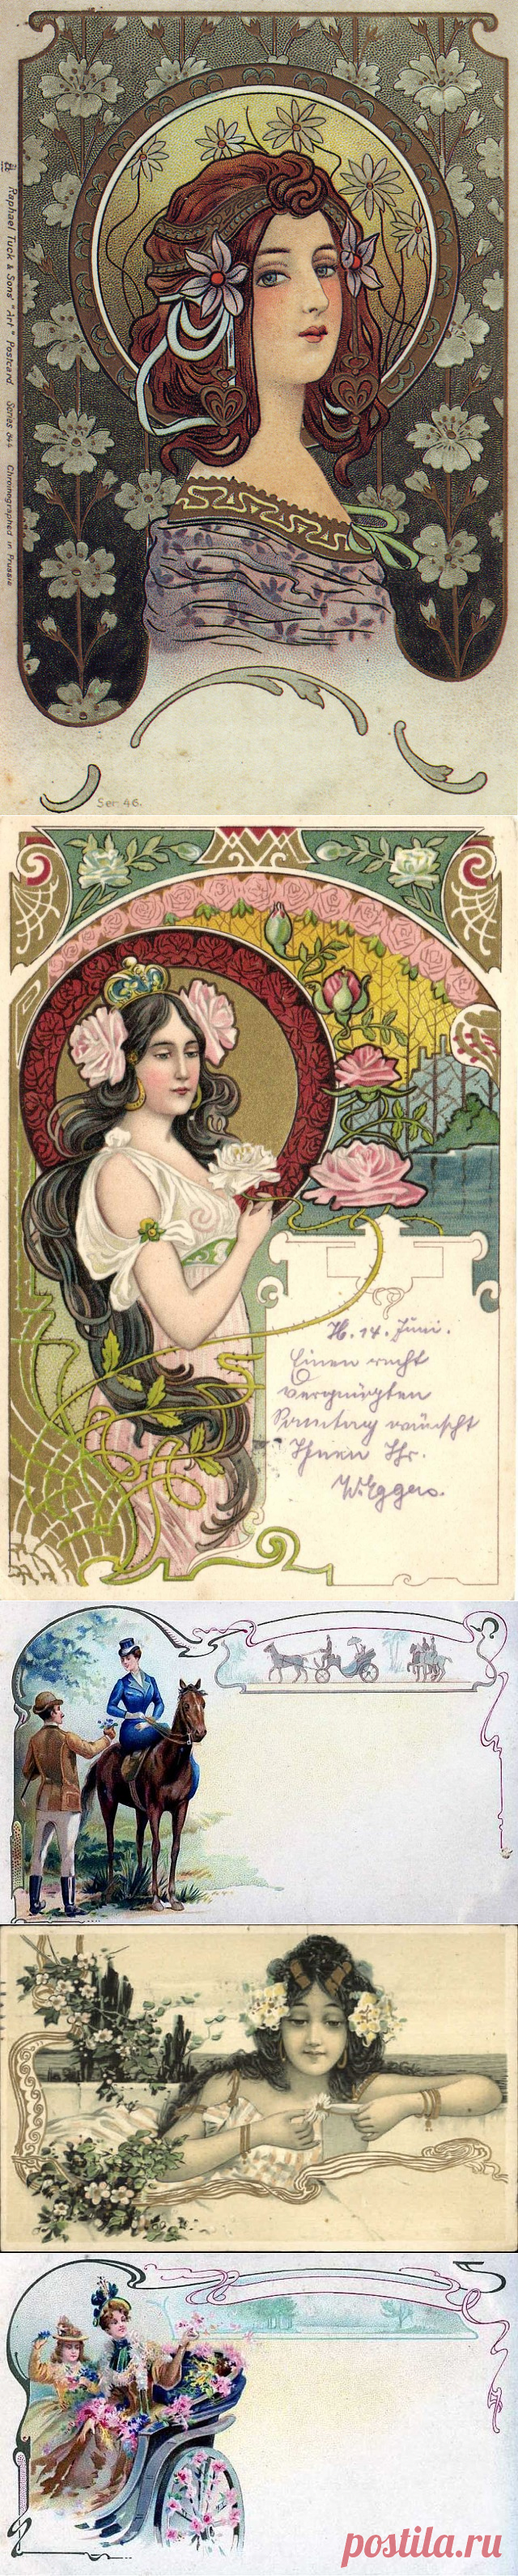 Raphael Tuck & Sons' "Art" Postcard Series 344 Chromographed in Prussia
Ser 46.
H. 14. Juni.
Einen recht
vergnügten
Sonntag wünscht
Ihnen Ihr.
W. Eggers.
postila.ru